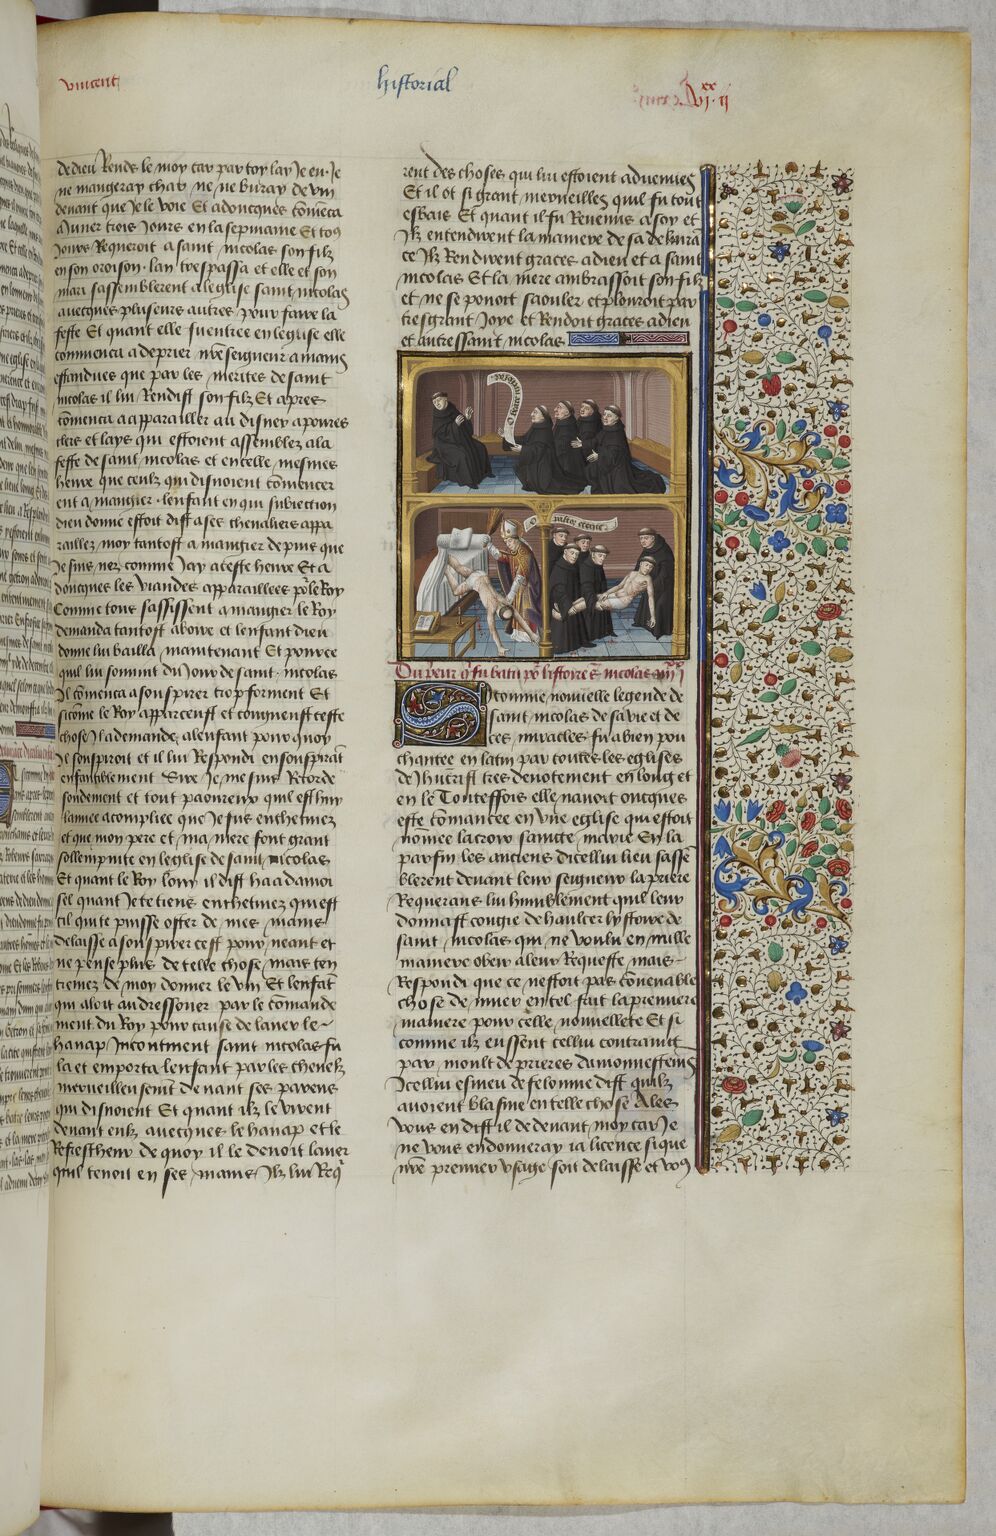 vincent
historial
vi xx ii
de dieu Rends le moy car par toy lay Je en. Je
ne mangeray char ne ne buray de vin
devant que Je le voie Et adoncques cõmẽca
a Juner trois Jours en la sepmaine Et to9
Jours Requeroit a saint nicolas son filz
en son oroison. lan trespassa et elle et son
mari sassemblerent a leglise saint nicolas
avecques plusieurs autres pour faire la
feste Et quant elle fu entree en leglise elle
commenca a deprier nr̃e seigneur a mains
estandues que par les merites de saint
nicolas il lui Rendist son filz Et apres
cõmenca a apparailler au disner a poures
clers et lays qui estoient assemblez a la
feste de saint nicolas et en celle mesmes
heure que ceulz qui disnoient cõmencer
ent a mangier. lenfant en qui subiection
dieu donne estoit dist a ses chevaliers appa
raillez moy tantost a mangier depuis que
Je fus nez comme Jay a ceste heure Et a
doncques les viandes apparaillees po2 le Roy
Comme tous sassissent a mangier le Roy
demanda tantost a boire et lenfant dieu
donne lui bailla maintenant Et pour ce
quil lui souvint du Jour de saint nicolas
Il cõmenca a souspirer trop forment Et
sicõme le Roy apparceust et congneust ceste
chose Il a demande a lenfant pour quoy
Il souspiroit et il lui Respondi en souspirãt
ensanglement Sire Je me suis Recorde
soudement et tout paoureux quil est huy
lannee acomplie que Je fus enthernez
et que mon pere et ma mere font grant
sollempnite en leglise de saint nicolas
Et quant le Roy louy il dist ha a damoi
sel quant Je te tiens enthernez qui est
cil qui te puisse oster de mes mains
delaisse a souspirer cest pour neant et
ne pense plus de telle chose mais ten
tremez de moy donner le vin Et lenfãt
qui aloit au dressouer par le cõmande
ment du Roy pour cause de laver le
hanap Incontinent saint nicolas fu
la et emporta lenfant par les cheuelz
merveilleusemẽt devant ses parens
qui disnoient Et quant ilz le virent
devant eulz avecques le hanap et le
Refrescheur de quoy il le devoit laver
quil tenoit en ses mains Ilz lui Req̃
rent des choses qui lui estoient advenues
Et il ot si grant merveilles quil fu tout
esbais Et quant il fu Revenus a soy et
Ilz entendirent la maniere de sa delivrã
ce Ilz Rendirent graces a dieu et a saint
nicolas Et la mere ambrassoit son filz
et ne se povoit saouler et plouroit par
tresgrant Joye et Rendoit graces a dieu
et autressaint nicolas
O pastor eterne
Du p̃eur q̃ fu batu po2 listoire s. nicolas
Sicomme nouvelle legende de
saint nicolas de sa vie et de
ces miracles fu a bien pou
chantee en latin par toutes les eglises
de Jhucrist tres devotement en long et
en le Toutesfois elle navoit oncques
este cõmancee en vne eglise qui estoit
nõmee la croix saincte marie En la
parfin les anciens dicellui lieu sassẽ
blerent devant leur seigneur la priere
Requerans lui humblement quil leur
donnast congie de haulcer lystoire de
saint nicolas qui ne voulu en nulle
maniere obeir a leur Requeste mais
Respondi que ce nestoit pas cõvenable
chose de muer en tel fait la premiere
maniere pour celle nouvellete Et si
comme ilz eussent cellui contraint
par moult de prieres damonnestemẽs
Icellui esmeu de felonnie dist quilz
avoient blasme en telle chose Ales
vous en dist il de devant moy car Je
ne vous en donneray ia licence si que
nr̃e premier usage soit delaisse et vo9